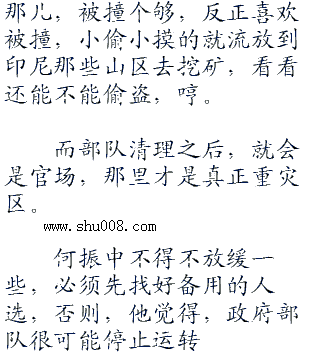 那儿，被撞个够，反正喜欢
被撞，小偷小摸的就流放到
印尼那些山区去挖矿，看看
还能不能偷盗，哼。
而部队清理之后，就会
是官场，那里才是真正重灾
区。
www.shu008.com
何振中不得不放缓一
些，必须先找好备用的人
选，否则，他觉得，政府部
队很可能停止运转